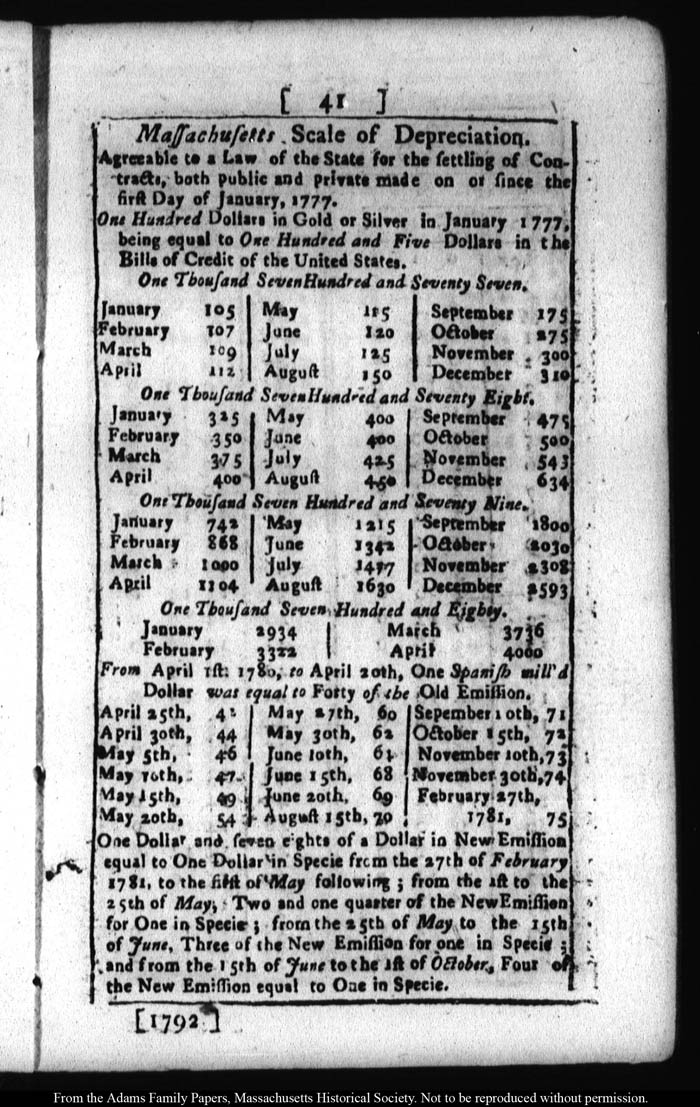 [ 41 ]
Maſſachuſetts Scale of Depreciation.
Agreeable to a Law of the State for the ſettling of Con-
tracts, both public and private made on or ſince the
firſt Day of January, 1777.
One Hundred Dollars in Gold or Silver in January 1777,
being equal to One Hundred and Five Dollars in the
Bills of Credit of the United States.
One Thouſand Seven Hundred and Seventy Seven.
January 105 May 115 September 175
February 107 June 120 October 275
March 109 July 125 November 300
April 112 Auguſt 150 December 310
One Thouſand Seven Hundred and Seventy Eight.
January 325 May 400 September 475
February 350 June 400 October 500
March 375 July 425 November 543
April 400 Auguſt 450 December 634
One Thouſand Seven Hundred and Seventy Nine.
January 742 May 1215 September 1800
February 868 June 1342 October 2030
March 1000 July 1477 November 2308
April 1104 Auguſt 1630 December 2593
One Thouſand Seven Hundred and Eighty.
January 2934 March 3736
February 3322 April 4000
From April 1ſt. 1780, to April 20th, One Spaniſh mill'd
Dollar was equal to Forty of the Old Emiſſion.
April 25th, 42 May 27th, 60 Sepember 10th, 71
April 30th, 44 May 30th, 62 October 15th, 72
May 5th, 46 June 10th, 64 November 10th, 73
May 10th, 47 June 15th, 68 November 30th, 74
May 15th, 49 June 20th, 69 February 27th,
May 20th, 54 Auguſt 15th, 70 1781, 75
One Dollar and ſeven eights of a Dollar in New Emiſſion
equal to One Dollar in Specie from the 27th of February
1781, to the firſt of May following; from the 1ſt to the
25th of May, Two and one quarter of the New Emiſſion
for One in Specie; from the 25th of May to the 15th
of June, Three of the New Emiſſion for one in Specie;
and from the 15th of June to the 1ſt of October, Four of
the New Emiſſion equal to One in Specie.
[1792]
From the Adams Family Papers, Massachusetts Historical Society. Not to be reproduced without permission.